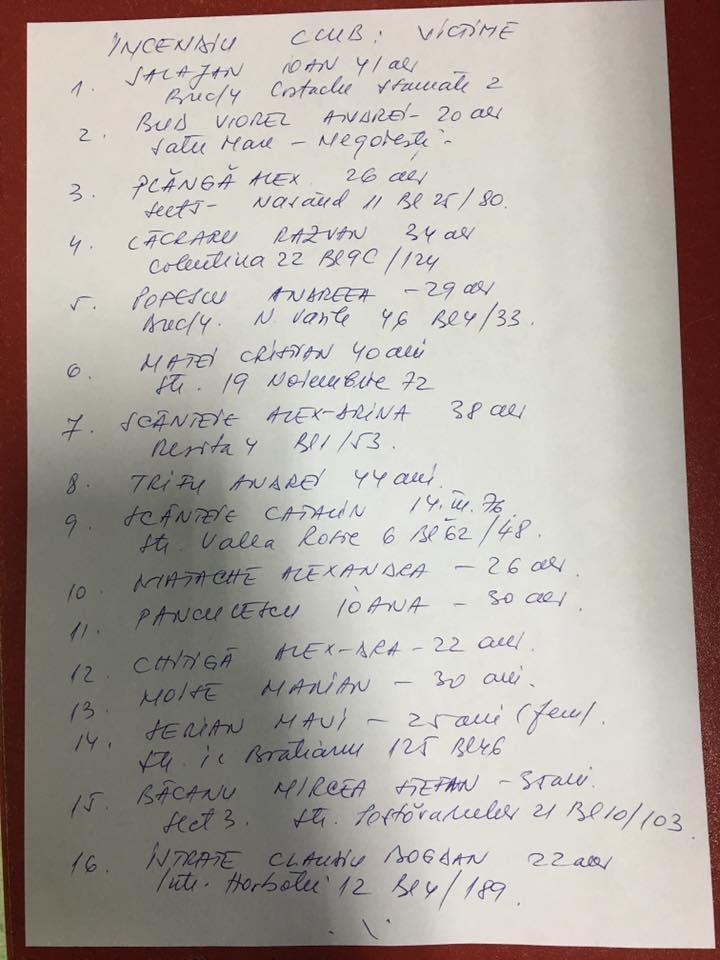 INCENDIU CLUB: VICTIME
1. SALAJAN IOAN 41 ani
Buc/4 Costache Stamate 2
2. BUD VIOREL ANDREI - 20 ani
Satu Mare - Negrești -
3. PLĂNGĂ ALEX. 26 ani
Sect 5 - Năsăud 11 Bl 25/80.
4. CĂCRARU RAZVAN 34 ani
Colentina 22 Bl 9C/124
5. POPESCU ANDREEA - 29 ani
Buc/4. N. Vasile 46 Bl 4/33.
6. MATEI CRISTIAN 40 ani
Str. 19 Noiembrie 72
7. SCÂNTEIE ALEX-DRINA 38 ani
Resita 4 Bl 1/53.
8. TRIFU ANDREI 44 ani.
9. SCÂNTEIE CATALIN 14.III.76.
Str. Valea Rosie 6 Bl 62/48.
10. MATACHE ALEXANDRA - 26 ani.
11. IOANA - 30 ani.
12. CHITIGĂ ALEX-DRA - 22 ani.
13. MOISE MARIAN - 30 ani.
14. SERIAN MAVI - 25 ani (fem).
Str. IC Bratianu 125 Bl 46
15. BĂCANU MIRCEA STEFAN - 35 ani.
Sect 3. Str. Postăvarului 21 Bl 10/103
16. INTRATE CLAUDIU BOGDAN 22 ani
Intr. Horbotei 12 Bl 4/189.